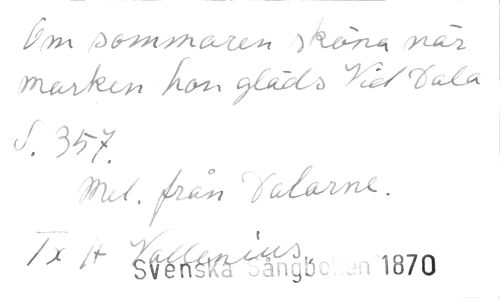 Om sommaren sköna när
marken hon gläds Vid Dala
S. 357.
Mel. från Dalarne.
Tx A Wallenius
Svenska Sångboken 1870